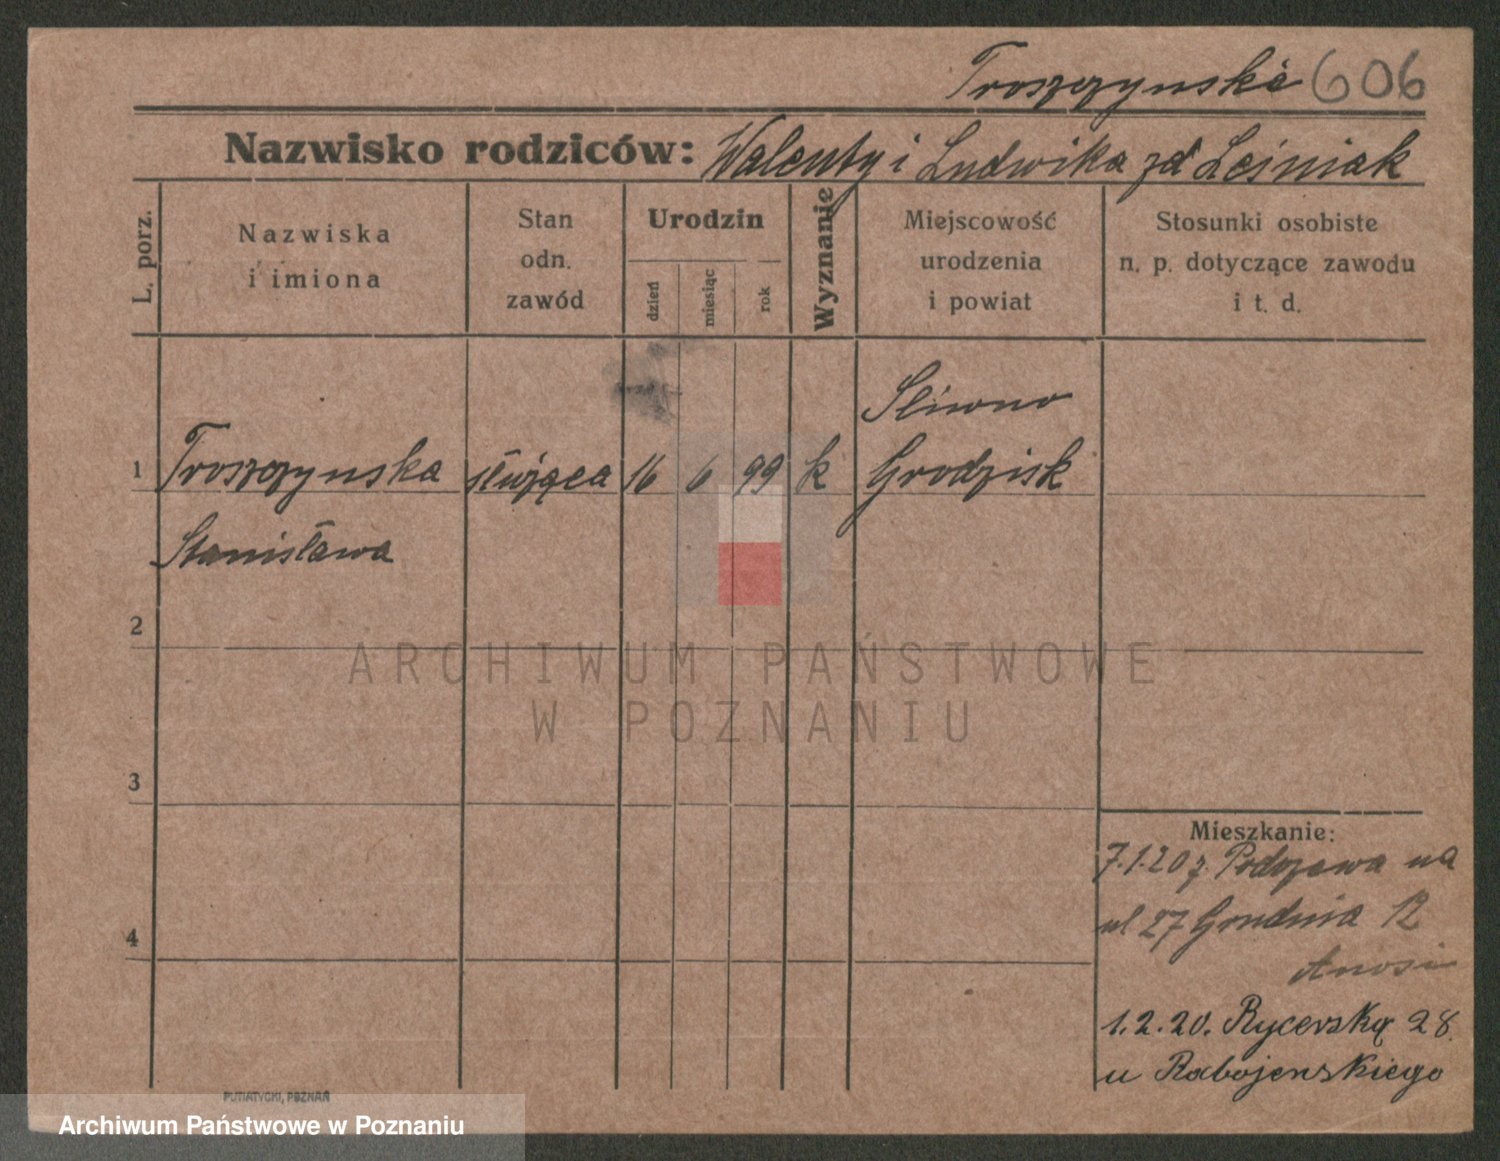 Troszczynski 606
Nazwisko rodziców: Walenty i Ludwika zd Leśniak
L. porz.
Nazwiska
i imiona
Stan
odn.
zawód
Urodzin
dzień
miesiąc
rok
Wyznanie
Miejscowość
urodzenia
i powiat
Stosunki osobiste
n. p. dotyczące zawodu
i t. d.
Sliwno
1 Troszczynska służąca 16 6 99 k Grodzisk
Stanisława
2
ARCHIWUM PAŃSTWOWE
W POZNANIU
3
Mieszkanie:
7.1.20 z na
ul 27 Grudnia 12
4
1.2.20. Rycerską 28.
u Rabojenskiego
PUTIATYCKI, POZNAŃ
Archiwum Państwowe w Poznaniu